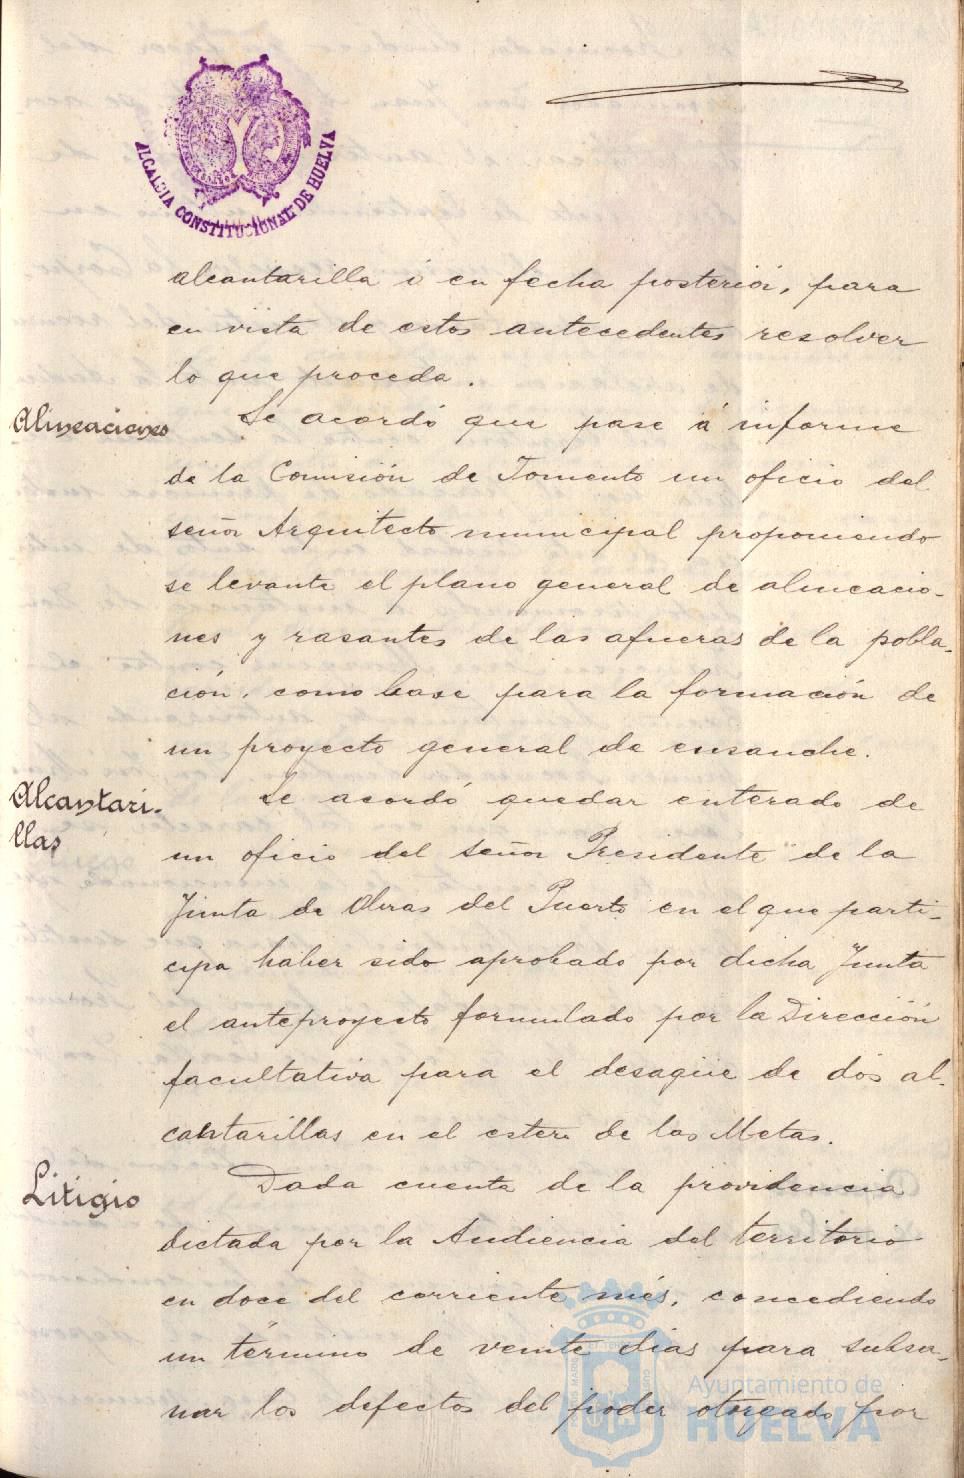 ALCALDIA CONSTITUCIONAL DE HUELVA
alcantarilla ó en fecha posterior, para
en vista de estos antecedentes resolver
lo que proceda.
Alineaciones
Se acordó que pase á informe
de la Comisión de Fomento un oficio del
señor Arquitecto municipal proponiendo
se levante el plano general de alineacio-
nes y rasantes de las afueras de la pobla-
ción, como base para la formación de
un proyecto general de ensanche.
Alcantari-
llas
Se acordó quedar enterado de
un oficio del señor Presidente de la
Junta de Obras del Puerto en el que parti-
cipa haber sido aprobado por dicha Junta
el anteproyecto formulado por la Dirección
facultativa para el desagüe de dos al-
cantarillas en el estero de las Metas.
Litigio
Dada cuenta de la providencia
dictada por la Audiencia del territorio
en doce del corriente més, concediendo
un término de veinte dias para subsa-
nar los defectos del poder otorgado por
Ayuntamiento de
HUELVA